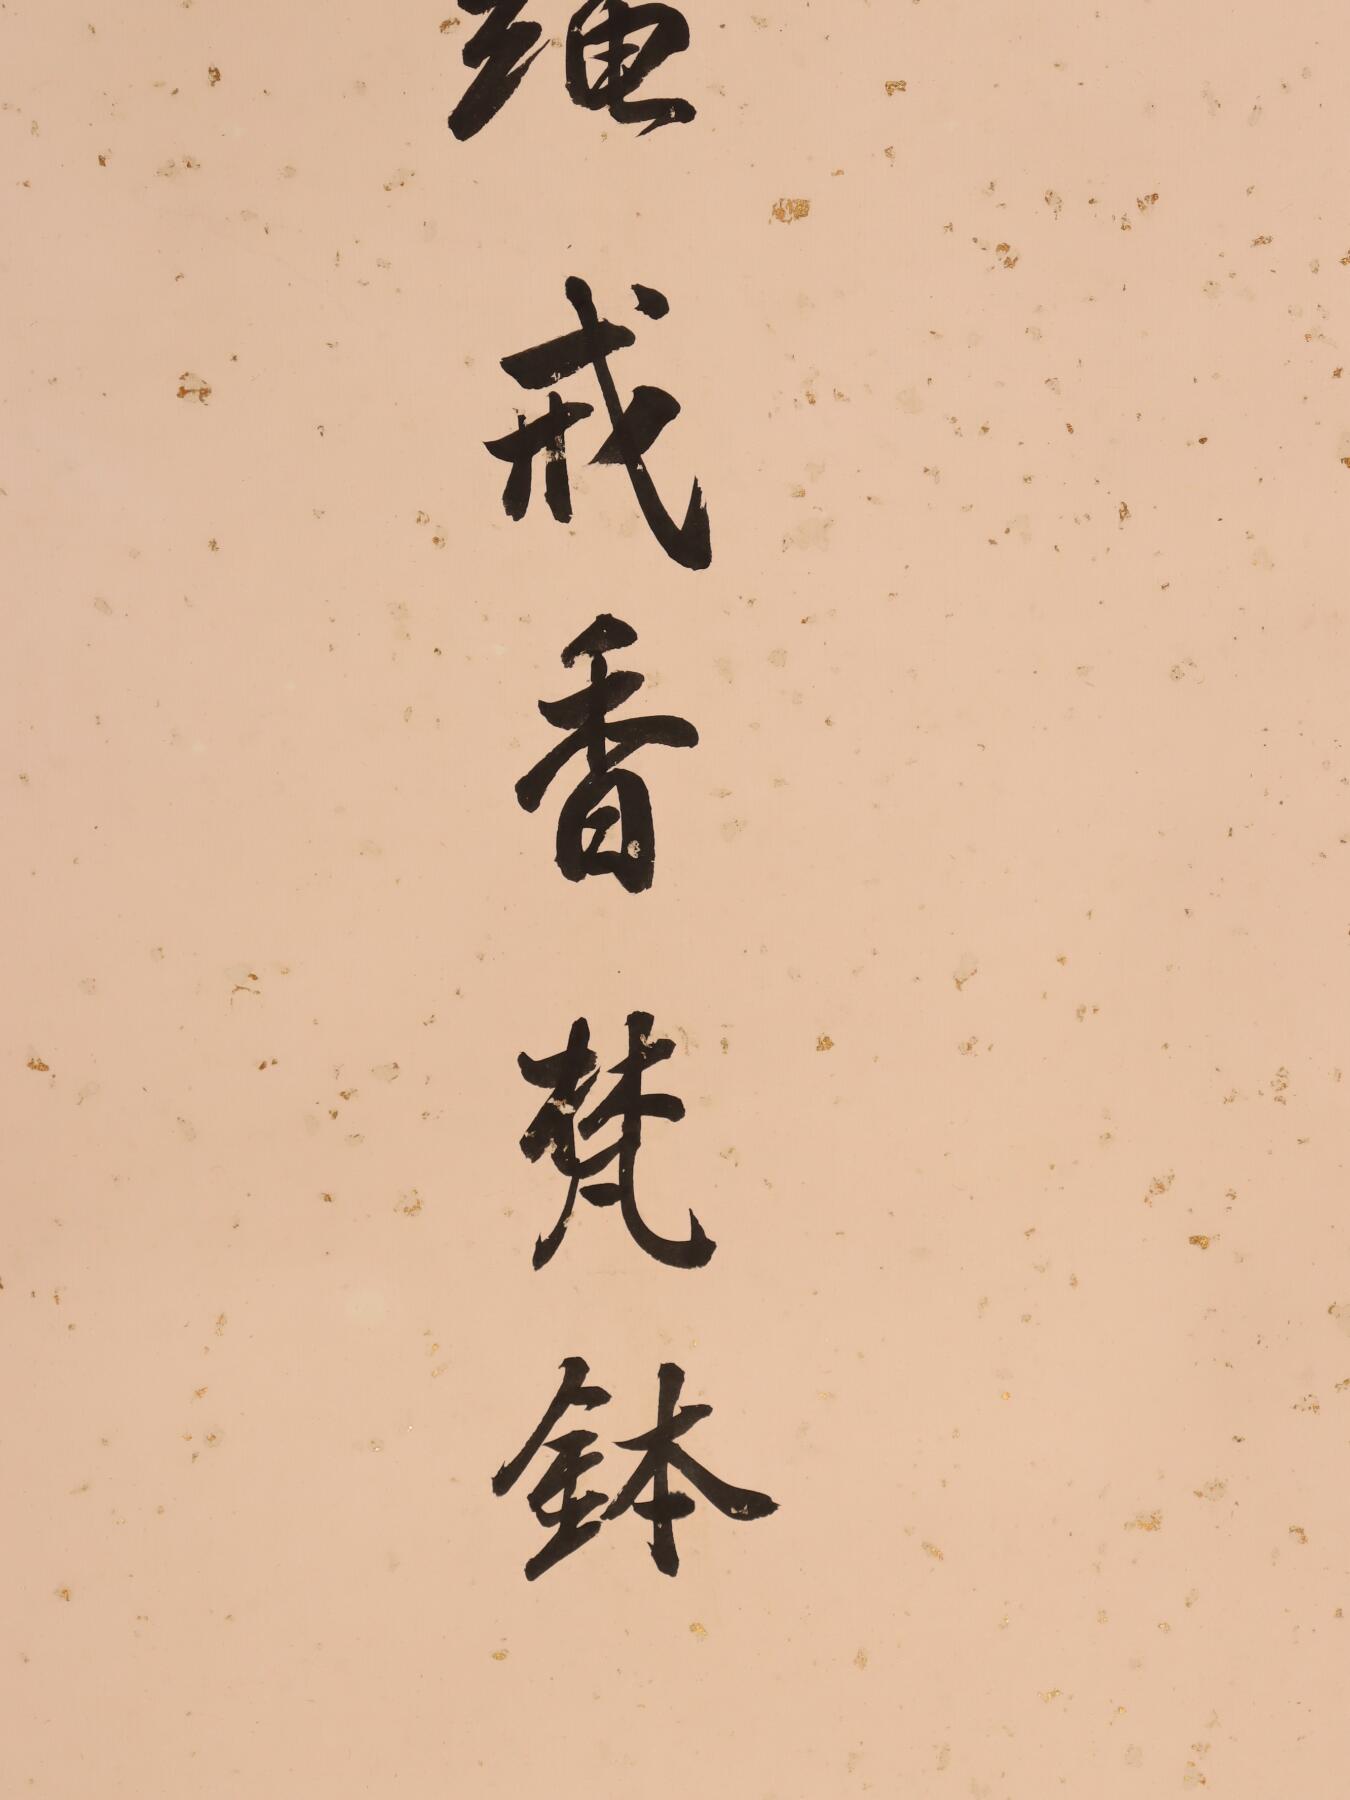 绳戒香梵鉢